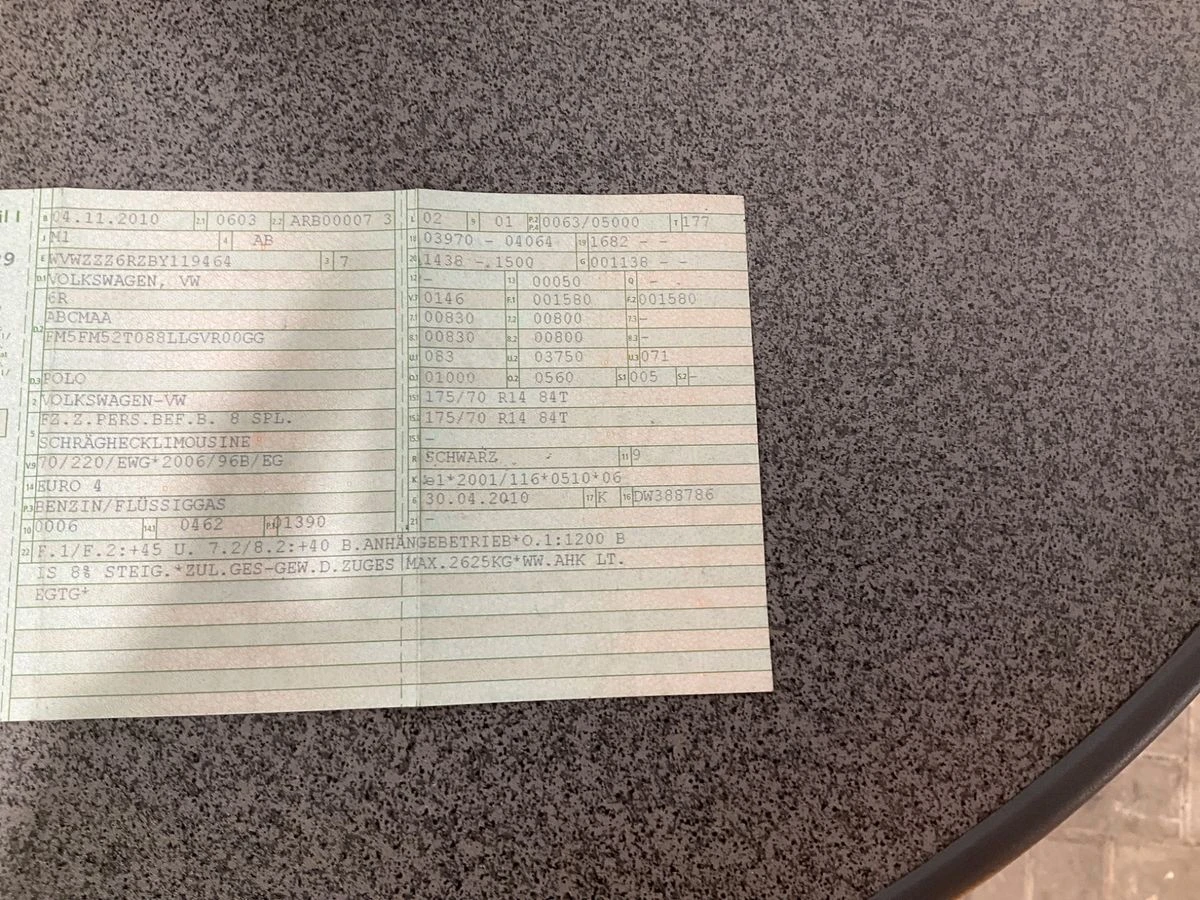 B 04.11.2010 2.1 0603 2.2 ARB00007 3
J M1 4 AB
E WVWZZZ6RZBY119464 3 7
D.1 VOLKSWAGEN, VW
6R
D.2 ABCMAA
FM5FM52T088LLGVR00GG
D.3 POLO
2 VOLKSWAGEN-VW
FZ.Z.PERS.BEF.B. 8 SPL.
5 SCHRÄGHECKLIMOUSINE
V.9 70/220/EWG*2006/96B/EG
14 EURO 4
P.3 BENZIN/FLÜSSIGGAS
10 0006 14.1 0462 P.1 01390
L 02 9 01 P.2 P.4 0063/05000 T 177
18 03970 - 04064 19 1682 - -
20 1438 - 1500 G 001138 - -
12 - 13 00050 Q -
V.7 0146 F.1 001580 F.2 001580
7.1 00830 7.2 00800 7.3 -
8.1 00830 8.2 00800 8.3 -
U.1 083 U.2 03750 U.3 071
O.1 01000 O.2 0560 S.1 005 S.2 -
15.1 175/70 R14 84T
15.2 175/70 R14 84T
15.3 -
R SCHWARZ 11 9
K e1*2001/116*0510*06
6 30.04.2010 17 K 16 DW388786
21 -
22 F.1/F.2:+45 U. 7.2/8.2:+40 B.ANHÄNGEBETRIEB*O.1:1200 B
IS 8% STEIG.*ZUL.GES-GEW.D.ZUGES MAX.2625KG*WW.AHK LT.
EGTG*